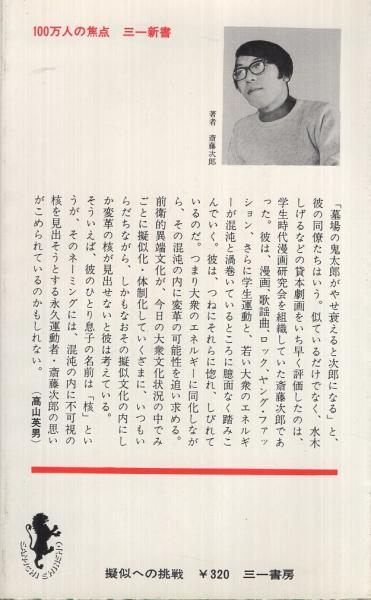 100万人の焦点 三一新書
著者 斎藤次郎
「墓場の鬼太郎がやせ衰えると次郎になる」と、
彼の同僚たちはいう。似ているだけでなく、水木
しげるなどの貸本劇画をいち早く評価したのは、
学生時代漫画研究会を組織していた斎藤次郎であ
った。彼は、漫画、歌謡曲、ロック、ヤング・ファッ
ション、さらに学生運動と、若い大衆のエネルギ
ーが混沌と渦巻いているところに臆面なく踏みこ
んでいく。彼は、つねにそれらに惚れ、しびれて
いるのだ。つまり大衆のエネルギーに同化しなが
ら、その混沌の内に変革の可能性を追い求める。
前衛的異端文化が、今日の大衆文化状況の中でみ
ごとに擬似化・体制化していくさまに、いつもい
らだちながら、しかもなおその擬似文化の内にし
か変革の核が見出せないと彼は考えている。
そういえば、彼のひとり息子の名前は「核」とい
うが、そのネーミングには、混沌の内に不可視の
核を見出そうとする永久運動者・斎藤次郎の思い
がこめられているのかもしれない。
(高山英男)
SAN-ICHI SHINSHO
擬似への挑戦 ¥320 三一書房